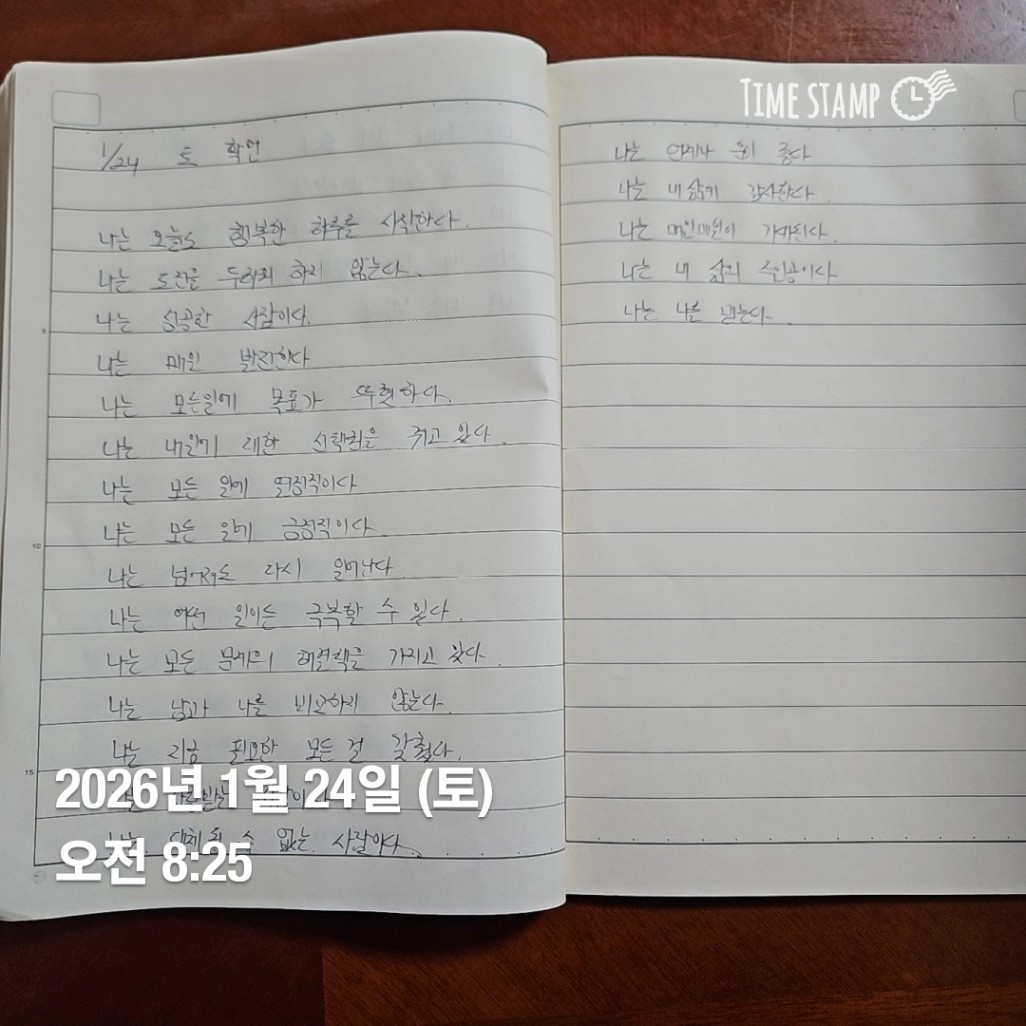 1/24 토 확언
나는 오늘도 행복한 하루를 시작한다.
나는 도전을 두려워 하지 않는다.
나는 성공한 사람이다.
나는 매일 발전한다
나는 모든일에 목표가 뚜렷하다.
나는 내일에 대한 선택권을 쥐고 있다.
나는 모든 일에 열정적이다
나는 모든 일에 긍정적이다.
나는 넘어져도 다시 일어난다.
나는 어떤 일이든 극복할 수 있다.
나는 모든 문제의 해결책을 가지고 있다.
나는 남과 나를 비교하지 않는다.
나는 지금 필요한 모든 걸 갖췄다.
나는
나는 대체될 수 없는 사람이다.
TIME STAMP
나는 언제나 운이 좋다
나는 내 삶에 감사한다.
나는 매일매일이 기대된다.
나는 내 삶의 주인공이다
나는 나를 믿는다.
2026년 1월 24일 (토)
오전 8:25